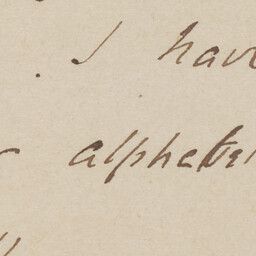 . I have
alphabe